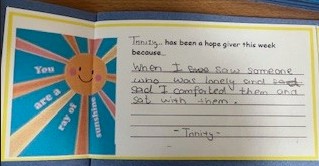 You
are a
ray of
sunshine
Trinity.. has been a hope giver this week
because...
When I saw someone
who was lonely and
sad I comforted them and
sat with them.
- Trinity -